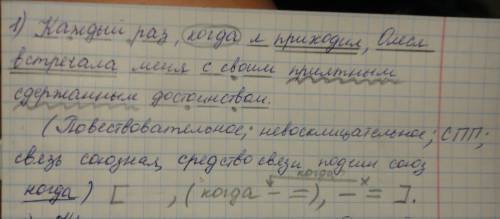 1) Каждый раз, когда я приходил, Олеся
встречала меня с своим приятным
сдержанным достоинством.
(Повествовательное; невосклицательное; СПП;
связь союзная, средство связи подчин союз
когда) [ , (когда - =), - = ].
когда х